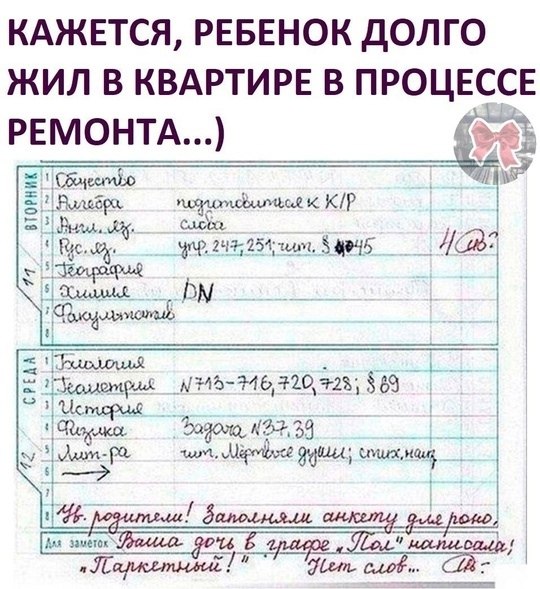 КАЖЕТСЯ, РЕБЕНОК ДОЛГО
ЖИЛ В КВАРТИРЕ В ПРОЦЕССЕ
РЕМОНТА...)
ВТОРНИК
11
1 Общество
2 Алгебра подготовиться к К/Р
3 Англ. яз. слова
4 Рус. яз. упр. 247, 251; чит. § 45 4
5 География
6 Химия
7 Факультатив
8
СРЕДА
12
1 Биология
2 Геометрия №713-716, 720, 728; § 69
3 История
4 Физика Задача №37, 39
5 Лит-ра чит. Мёртвые души; стих, наиз
6 →
7
8 Ув. родители! Заполняли анкету для роно.
Для заметок Ваша дочь в графе „Пол" написала;
„Паркетный!" Нет слов...